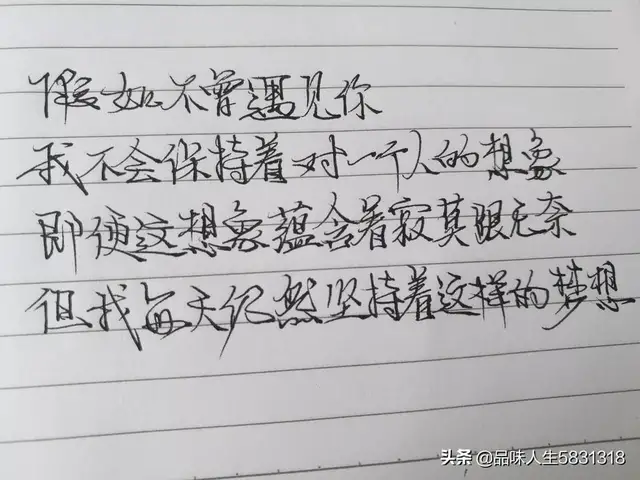 假如不曾遇见你
我不会保持着对一个人的想象
即便这想象蕴含着寂莫跟无奈
但我每天然坚持着这样的梦想
头条 @品味人生5831318